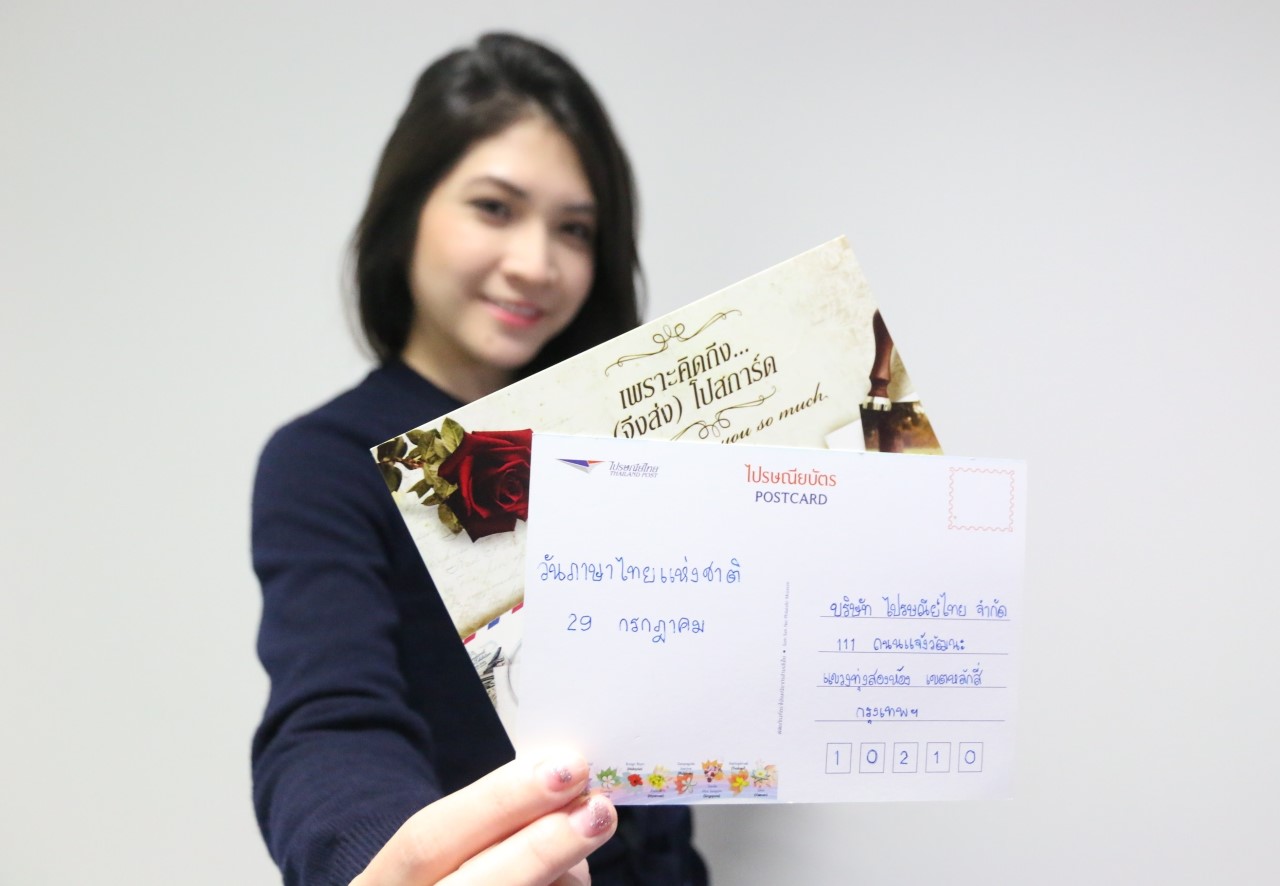 เพราะคิดถึง...
(จึงส่ง) โปสการ์ด
you so much.
ไปรษณีย์ไทย
THAILAND POST
ไปรษณียบัตร
POSTCARD
วันภาษาไทยแห่งชาติ
29 กรกฎาคม
บริษัท ไปรษณีย์ไทย จำกัด
111 ถนนแจ้งวัฒนะ
แขวงทุ่งสองห้อง เขตหลักสี่
กรุงเทพฯ
10210